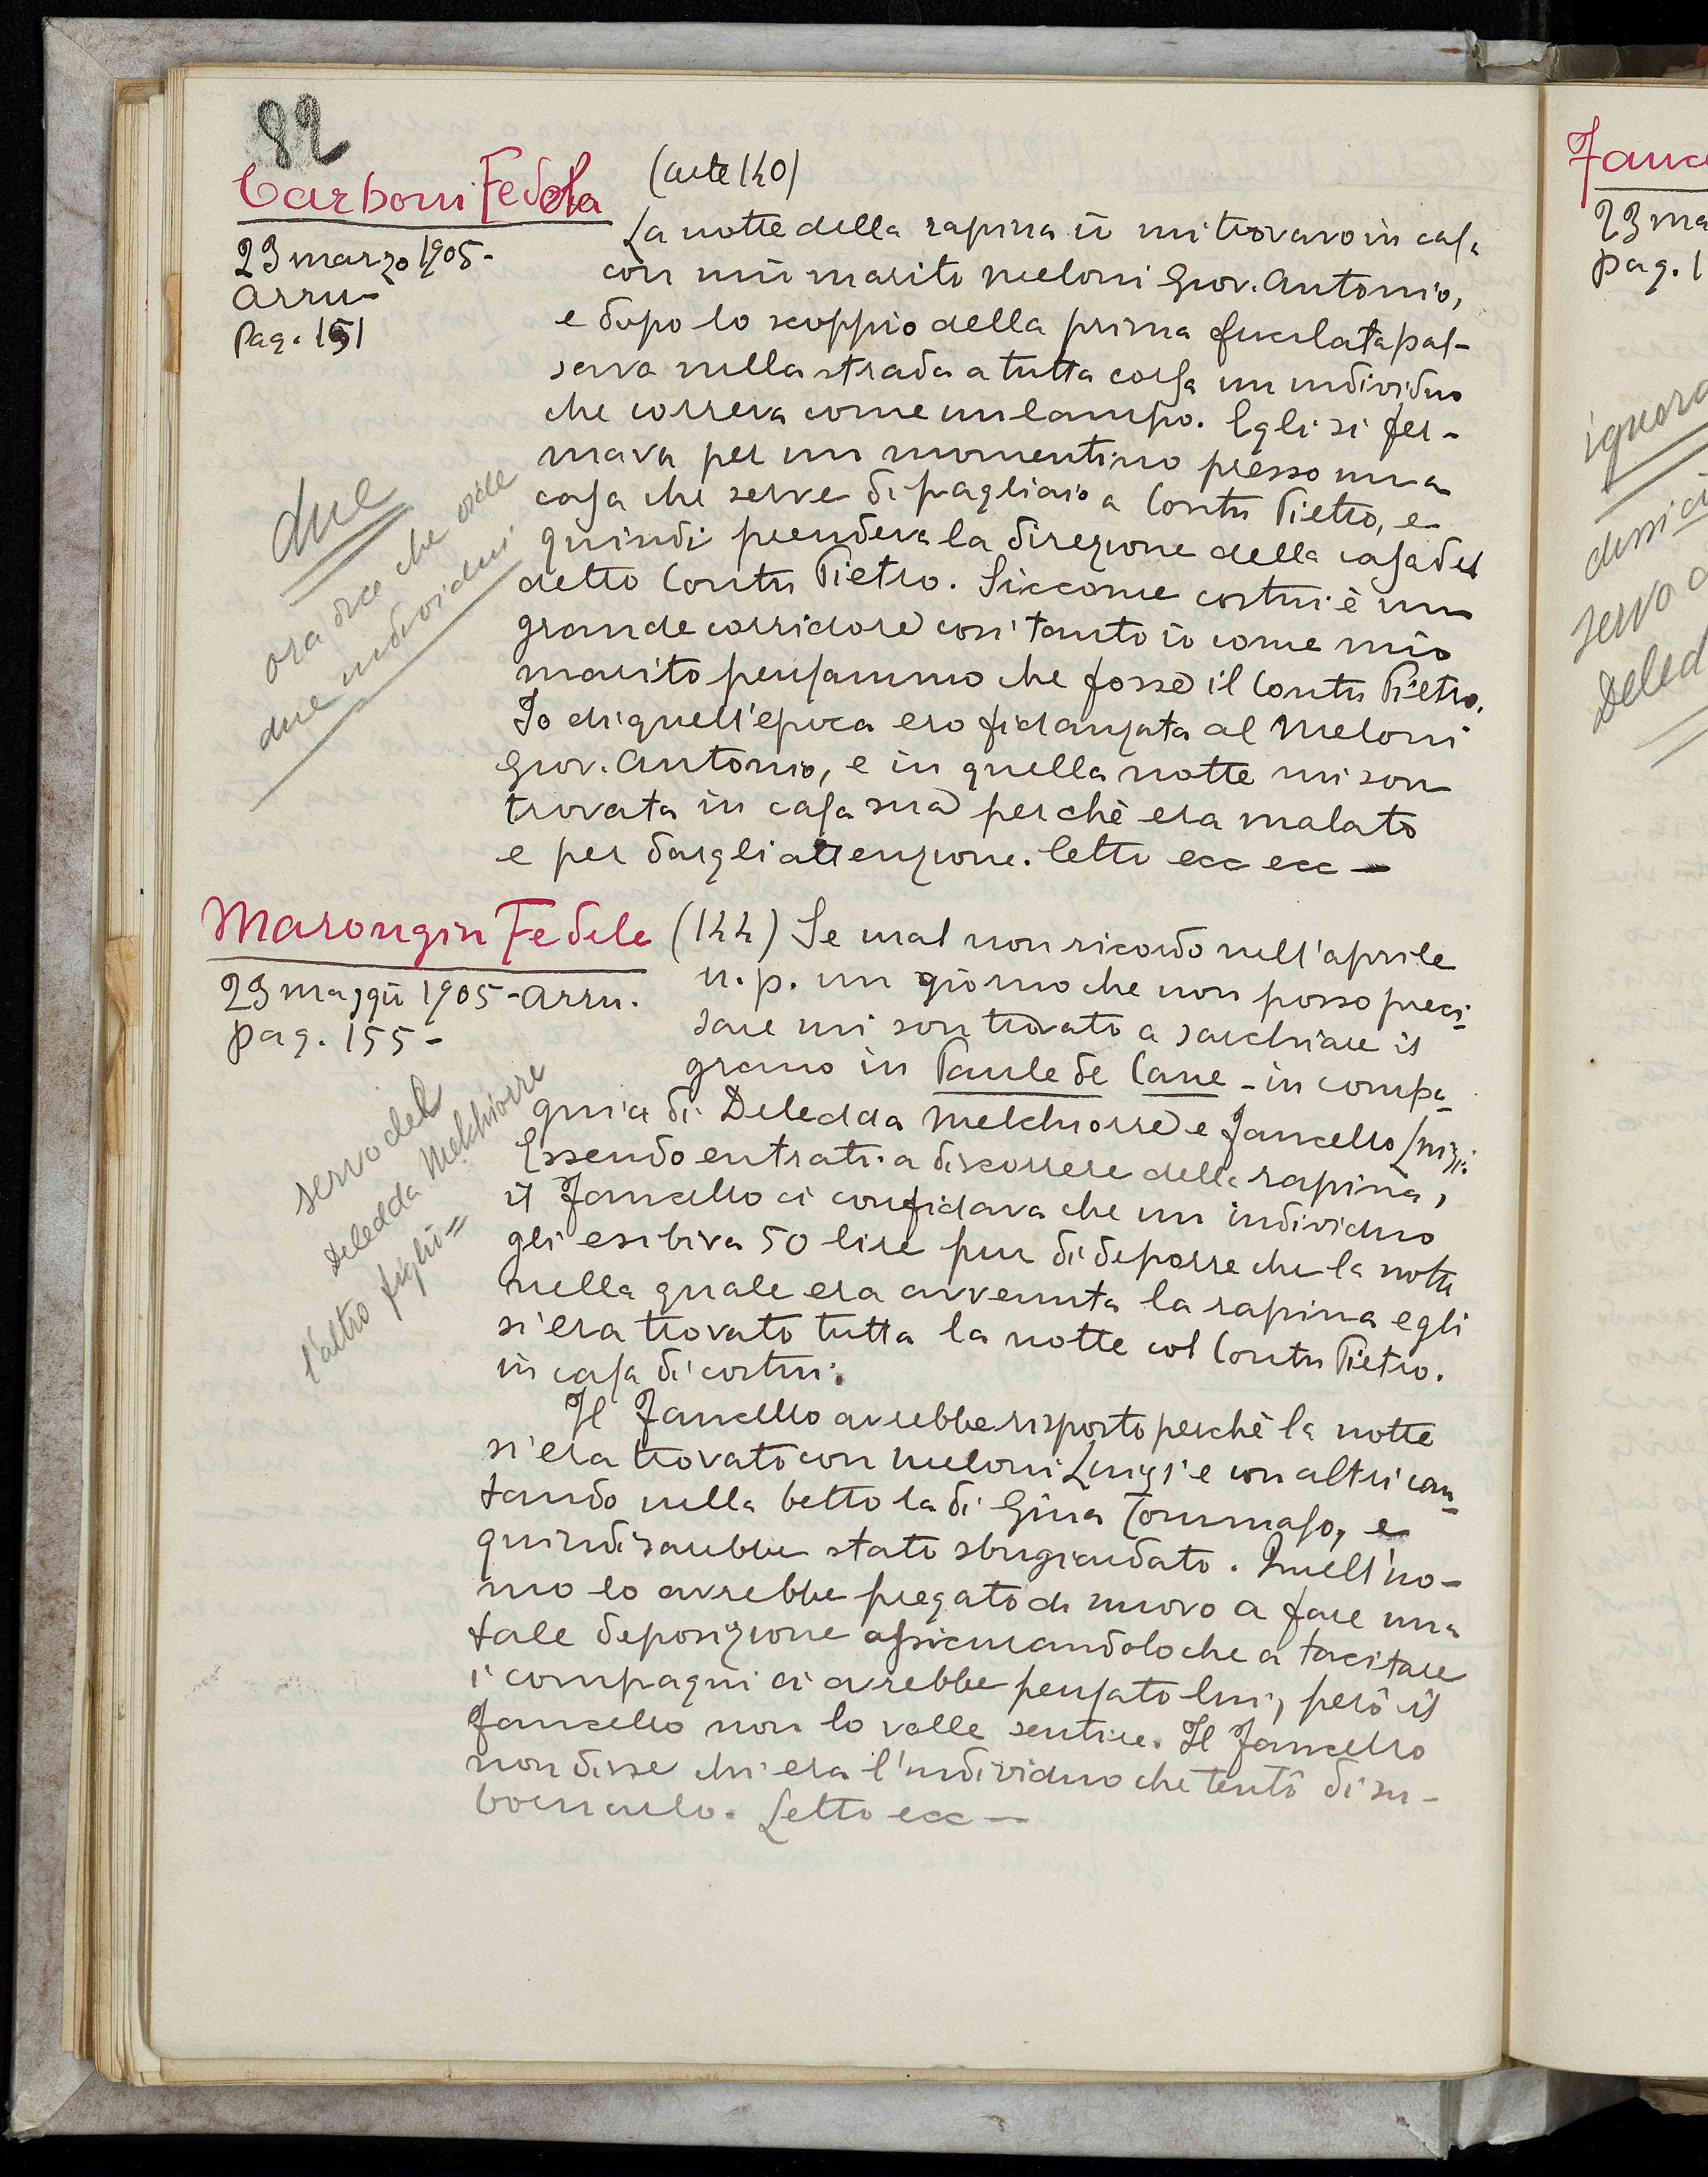 82
Carboni Fedela
(ante 140)
23 marzo 1905-
Arru-
Pag. 151
La notte della rapina io mi trovavo in casa
con mio marito Meloni Giov. Antonio,
e dopo lo scoppio della prima fucilata pas-
sava nella strada a tutta corsa un individuo
che correva come un lampo. Egli si fer-
mava per un momentino presso una
casa che serve di pagliaio a Contu Pietro, e
quindi prendeva la direzione della casa del
detto Contu Pietro. Siccome costui è un
grande corridore così tanto io come mio
marito pensammo che fosse il Contu Pietro.
Io di quell'epoca ero fidanzata al Meloni
Giov. Antonio, e in quella notte mi son
trovata in casa sua perchè era malato
e per dargli attenzione. Letto ecc ecc -
due
ora dice che vide
due individui
Marongiu Fedele
23 maggio 1905-Arru.
pag. 155-
(144) Se mal non ricordo nell'aprile
u. p. un giorno che non posso preci-
sare mi son trovato a sarchiare il
grano in Paule de Cane - in compa-
gnia di Deledda Melchiorre e Fancello Luigi.
Essendo entrati a discorrere della rapina,
il Fancello ci confidava che un individuo
gli esibiva 50 lire pur di deporre che la notte
nella quale era avvenuta la rapina egli
si era trovato tutta la notte col Contu Pietro.
in casa di costui.
Il Fancello avrebbe risposto perchè la notte
si era trovato con Meloni Luigi e con altri can-
tando nella bettola di Gina Tommaso, e
quindi sarebbe stato sbugiardato. Quell'uo-
mo lo avrebbe pregato di nuovo a fare una
tale deposizione assicurandolo che a tacitare
i compagni ci avrebbe pensato lui, però il
Fancello non lo volle sentire. Il Fancello
non disse chi era l'individuo che tentò di su-
bornarlo. Letto ecc -
servo del
Deledda Melchiorre
l'altro figlio=
23 ma
pag. 1
servo
Deled